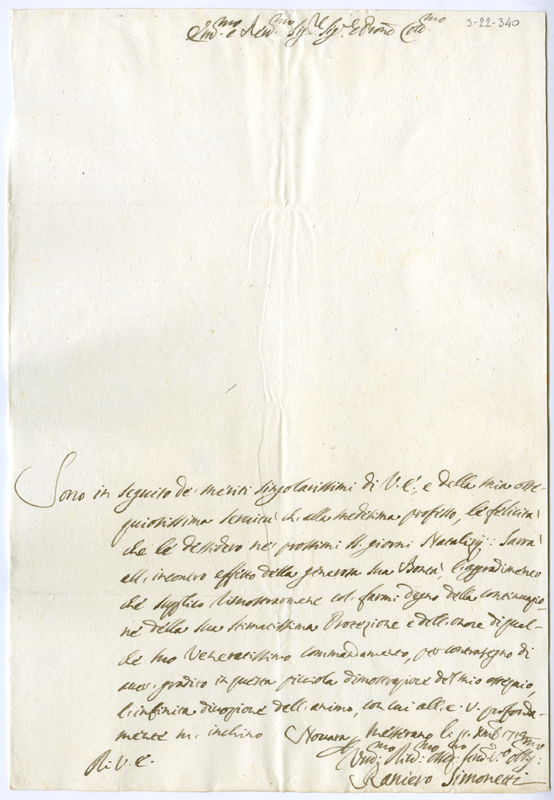 Em.mo e Rev.mo Sig.r Sig.r e Pron Col.mo
3-22-340
Sono in seguito de' meriti singolarissimi di V. E., e della mia osse-
quiosissima servitù ch. alla medesima professo, le felicità
che le desidero ne' prossimi SS. giorni Natalizj: Sarrà
all. incontro effetto della generosa sua Bontà, l'aggradimento
che supplico dimostrarmene col. farmi degno della continuazio-
ne della sua stimatissima Protezione e dell. onore di qual-
che suo veneratissimo commandamento, per contrasegno di
aver. gradito in questa picciola dimostrazione del mio ossequio,
l. infinita divozione dell. animo, con cui all. E. V. profonda-
mente m. inchino Novara Messerano li 11. Xmb. 1713
Di V. E.
Um. Dev. Obl.
Raniero Simonetti